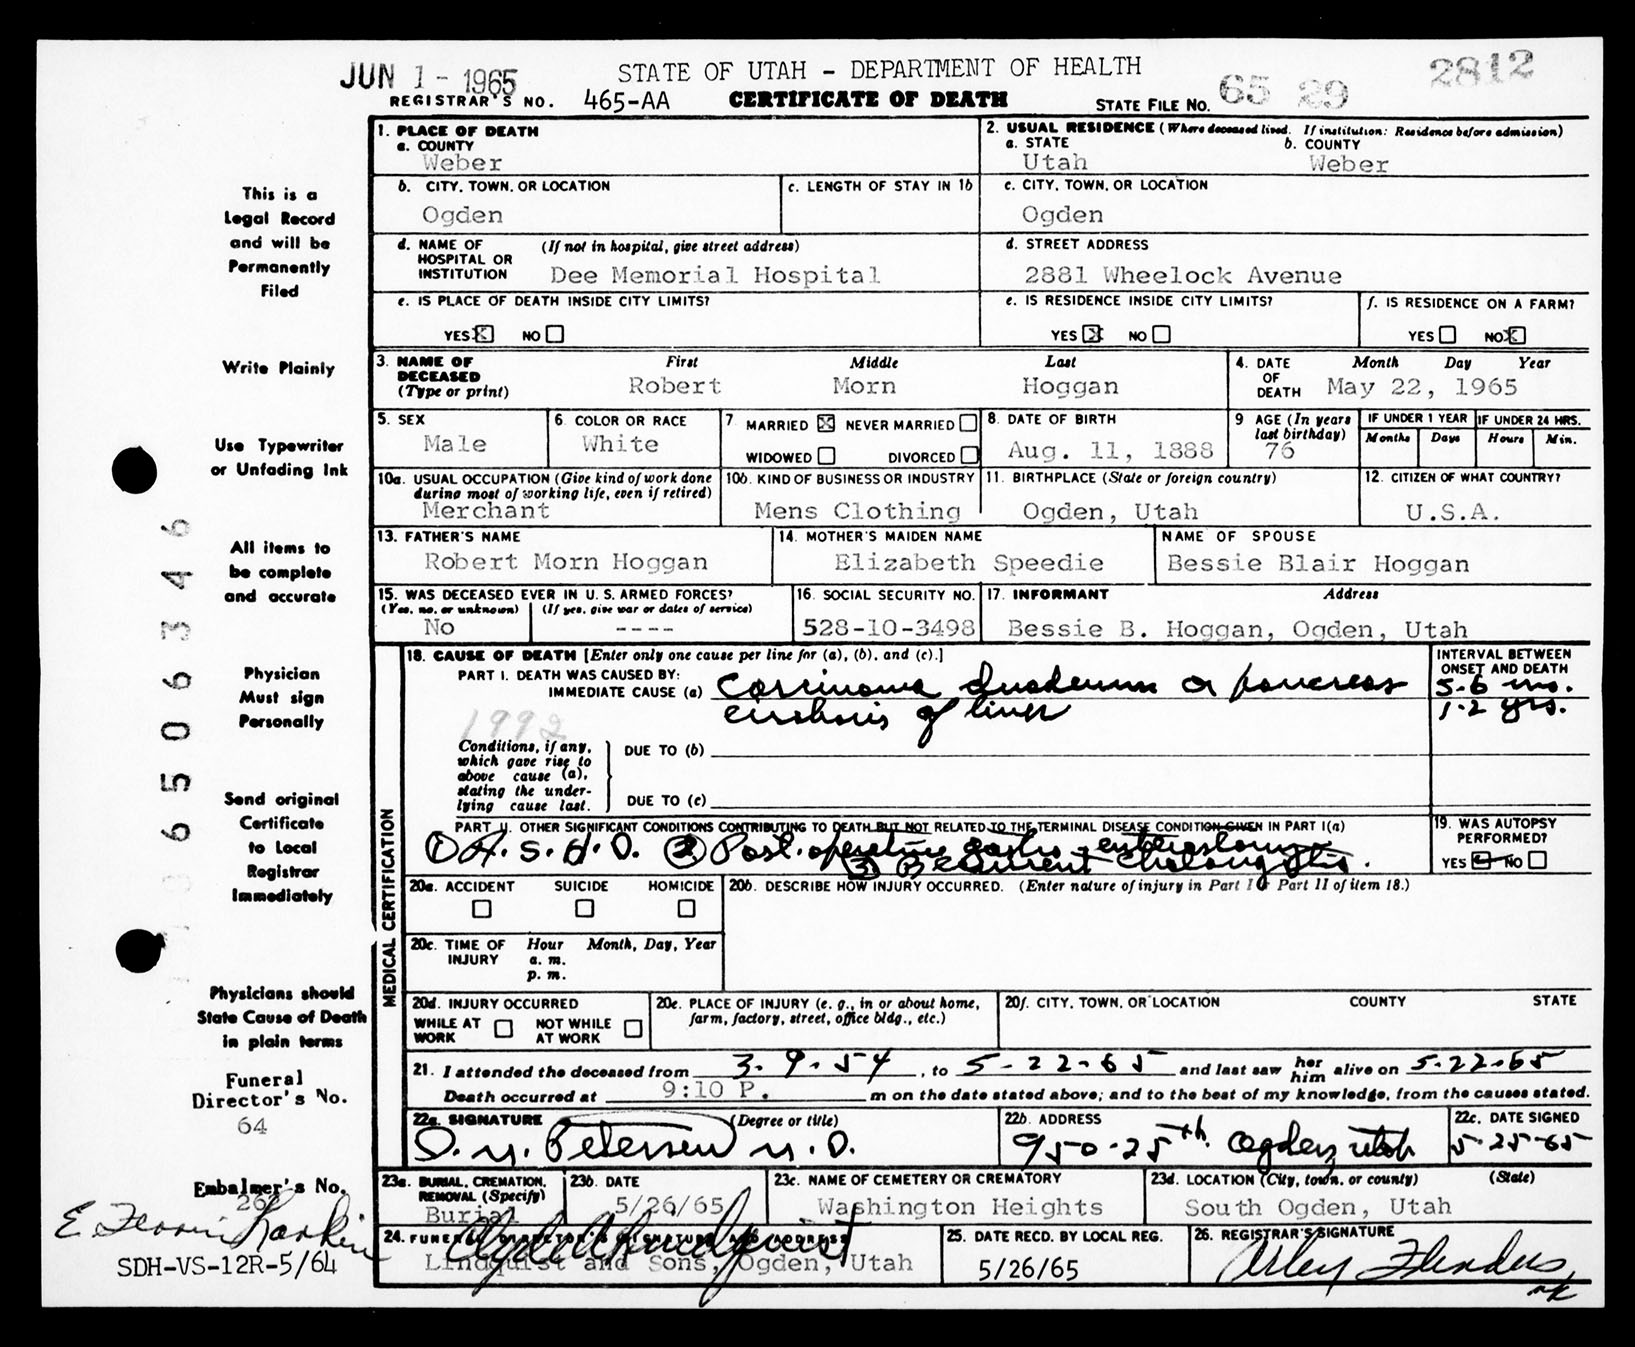 JUN 1 - 1965
STATE OF UTAH - DEPARTMENT OF HEALTH
2812
REGISTRAR'S NO. 465-AA
CERTIFICATE OF DEATH
STATE FILE NO. 65 29
This is a
Legal Record
and will be
Permanently
Filed
Write Plainly
Use Typewriter
or Unfading Ink
All items to
be complete
and accurate
Physician
Must sign
Personally
Send original
Certificate
to Local
Registrar
Immediately
Physicians should
State Cause of Death
in plain terms
Funeral
Director's No.
64
Embalmer's No.
E. Larkin
SDH-VS-12R-5/64
6506346
1. PLACE OF DEATH
a. COUNTY
Weber
2. USUAL RESIDENCE (Where deceased lived. If institution: Residence before admission)
a. STATE b. COUNTY
Utah Weber
b. CITY, TOWN, OR LOCATION
Ogden
c. LENGTH OF STAY IN 1b
c. CITY, TOWN, OR LOCATION
Ogden
d. NAME OF HOSPITAL OR INSTITUTION (If not in hospital, give street address)
Dee Memorial Hospital
d. STREET ADDRESS
2881 Wheelock Avenue
e. IS PLACE OF DEATH INSIDE CITY LIMITS?
YES X NO
e. IS RESIDENCE INSIDE CITY LIMITS?
YES X NO
f. IS RESIDENCE ON A FARM?
YES NO X
3. NAME OF DECEASED (Type or print)
First Middle Last
Robert Morn Hoggan
4. DATE OF DEATH
Month Day Year
May 22, 1965
5. SEX
Male
6. COLOR OR RACE
White
7. MARRIED X NEVER MARRIED
WIDOWED DIVORCED
8. DATE OF BIRTH
Aug. 11, 1888
9 AGE (In years last birthday)
76
IF UNDER 1 YEAR
Months Days
IF UNDER 24 HRS.
Hours Min.
10a. USUAL OCCUPATION (Give kind of work done during most of working life, even if retired)
Merchant
10b. KIND OF BUSINESS OR INDUSTRY
Mens Clothing
11. BIRTHPLACE (State or foreign country)
Ogden, Utah
12. CITIZEN OF WHAT COUNTRY?
U.S.A.
13. FATHER'S NAME
Robert Morn Hoggan
14. MOTHER'S MAIDEN NAME
Elizabeth Speedie
NAME OF SPOUSE
Bessie Blair Hoggan
15. WAS DECEASED EVER IN U.S. ARMED FORCES?
(Yes, no, or unknown) (If yes, give war or dates of service)
No ----
16. SOCIAL SECURITY NO.
528-10-3498
17. INFORMANT Address
Bessie B. Hoggan, Ogden, Utah
MEDICAL CERTIFICATION
18. CAUSE OF DEATH [Enter only one cause per line for (a), (b), and (c).]
INTERVAL BETWEEN ONSET AND DEATH
PART I. DEATH WAS CAUSED BY:
IMMEDIATE CAUSE (a) Carcinoma duodenum or pancreas 5-6 mo.
cirrhosis of liver 1-2 yrs.
1992
Conditions, if any, which gave rise to above cause (a), stating the underlying cause last.
DUE TO (b)
DUE TO (c)
PART II. OTHER SIGNIFICANT CONDITIONS CONTRIBUTING TO DEATH BUT NOT RELATED TO THE TERMINAL DISEASE CONDITION GIVEN IN PART I(a)
① A.S.H.D. ② Post-operative gastro-enterostomy
③ Recurrent cholangitis.
19. WAS AUTOPSY PERFORMED?
YES NO
20a. ACCIDENT SUICIDE HOMICIDE
20b. DESCRIBE HOW INJURY OCCURRED. (Enter nature of injury in Part I or Part II of item 18.)
20c. TIME OF INJURY
Hour Month, Day, Year
a. m.
p. m.
20d. INJURY OCCURRED
WHILE AT WORK NOT WHILE AT WORK
20e. PLACE OF INJURY (e. g., in or about home, farm, factory, street, office bldg., etc.)
20f. CITY, TOWN, OR LOCATION COUNTY STATE
21. I attended the deceased from 3-9-54, to 5-22-65 and last saw her him alive on 5-22-65
Death occurred at 9:10 P. m on the date stated above; and to the best of my knowledge, from the causes stated.
22a. SIGNATURE (Degree or title)
Petersen M.D.
22b. ADDRESS
950-25th. Ogden, Utah
22c. DATE SIGNED
5-25-65
23a. BURIAL, CREMATION, REMOVAL (Specify)
Burial
23b. DATE
5/26/65
23c. NAME OF CEMETERY OR CREMATORY
Washington Heights
23d. LOCATION (City, town, or county) (State)
South Ogden, Utah
24. FUNERAL DIRECTOR'S SIGNATURE AND ADDRESS
Clyde A Lindquist
Lindquist and Sons, Ogden, Utah
25. DATE RECD. BY LOCAL REG.
5/26/65
26. REGISTRAR'S SIGNATURE
Arley Flinders